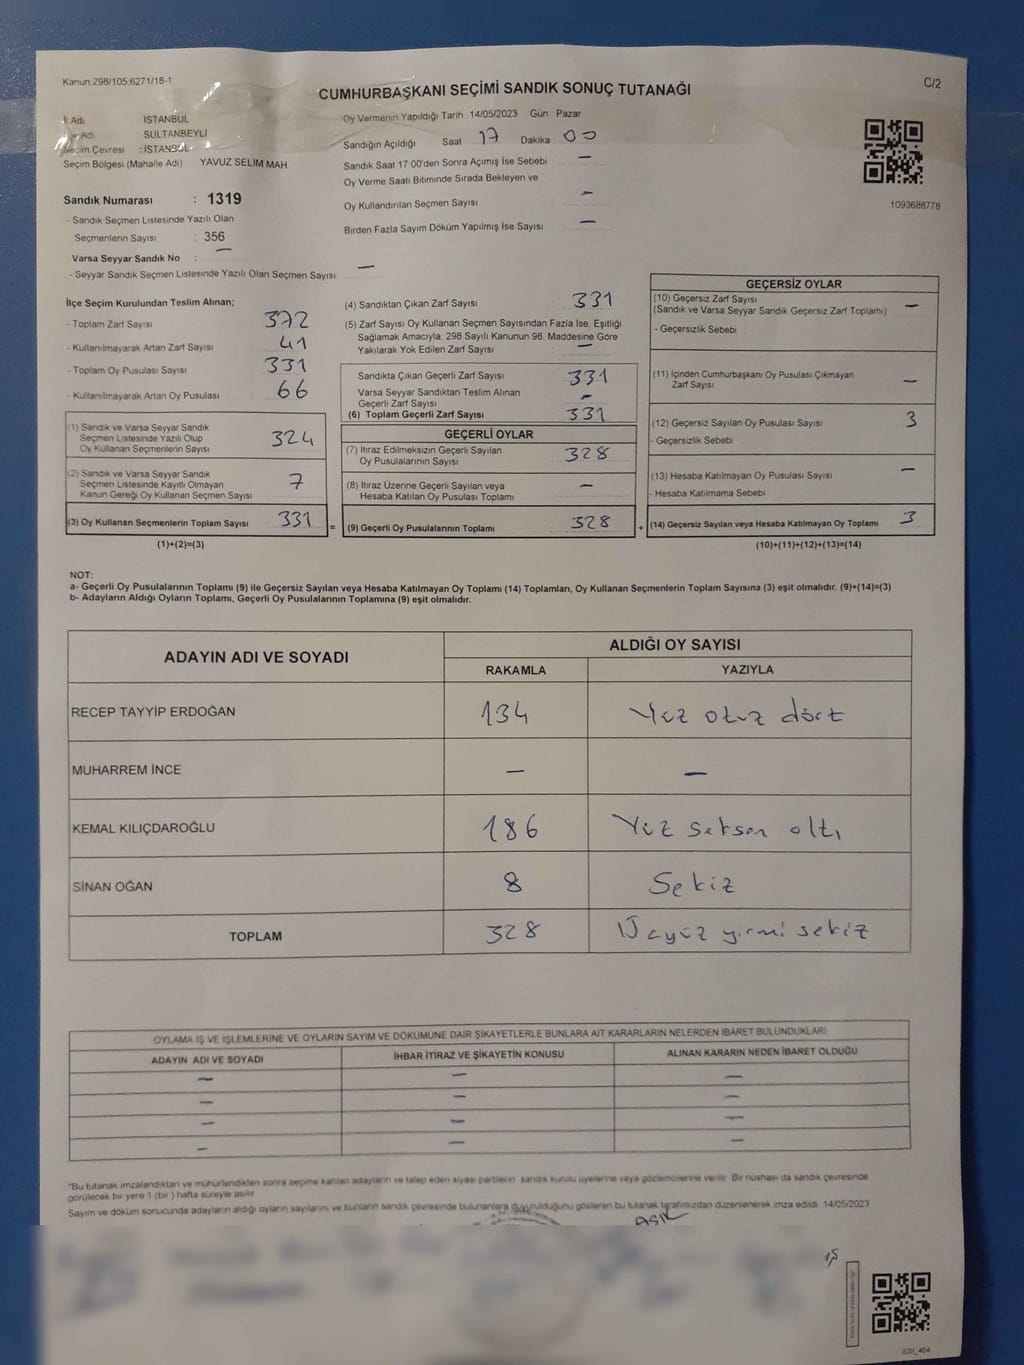 Kanun 298/105,6271/18-1
C/2
CUMHURBAŞKANI SEÇİMİ SANDIK SONUÇ TUTANAĞI
İl Adı İSTANBUL
Adı SULTANBEYLİ
Seçim Çevresi : İSTANBUL
Seçim Bölgesi (Mahalle Adı) YAVUZ SELİM MAH
Sandık Numarası : 1319
- Sandık Seçmen Listesinde Yazılı Olan
Seçmenlerin Sayısı : 356
Varsa Seyyar Sandık No : —
- Seyyar Sandık Seçmen Listesinde Yazılı Olan Seçmen Sayısı: —
Oy Vermenin Yapıldığı Tarih 14/05/2023 Gün Pazar
Sandığın Açıldığı Saat 17 Dakika 00
Sandık Saat 17.00'den Sonra Açımış İse Sebebi —
Oy Verme Saati Bitiminde Sırada Bekleyen ve
Oy Kullandırılan Seçmen Sayısı —
Birden Fazla Sayım Döküm Yapılmış İse Sayısı —
1093688778
İlçe Seçim Kurulundan Teslim Alınan;
- Toplam Zarf Sayısı 372
- Kullanılmayarak Artan Zarf Sayısı 41
- Toplam Oy Pusulası Sayısı 331
- Kullanılmayarak Artan Oy Pusulası 66
(1) Sandık ve Varsa Seyyar Sandık
Seçmen Listesinde Yazılı Olup
Oy Kullanan Seçmenlerin Sayısı 324
(2) Sandık ve Varsa Seyyar Sandık
Seçmen Listesinde Kayıtlı Olmayan
Kanun Gereği Oy Kullanan Seçmen Sayısı 7
(3) Oy Kullanan Seçmenlerin Toplam Sayısı 331 =
(1)+(2)=(3)
(4) Sandıktan Çıkan Zarf Sayısı 331
(5) Zarf Sayısı Oy Kullanan Seçmen Sayısından Fazla İse, Eşitliği
Sağlamak Amacıyla, 298 Sayılı Kanunun 98. Maddesine Göre
Yakılarak Yok Edilen Zarf Sayısı —
Sandıkta Çıkan Geçerli Zarf Sayısı 331
Varsa Seyyar Sandıktan Teslim Alınan
Geçerli Zarf Sayısı -
(6) Toplam Geçerli Zarf Sayısı 331
GEÇERLİ OYLAR
(7) İtiraz Edilmeksizin Geçerli Sayılan
Oy Pusulalarının Sayısı 328
(8) İtiraz Üzerine Geçerli Sayılan veya
Hesaba Katılan Oy Pusulası Toplamı —
(9) Geçerli Oy Pusulalarının Toplamı 328 +
GEÇERSİZ OYLAR
(10) Geçersiz Zarf Sayısı —
(Sandık ve Varsa Seyyar Sandık Geçersiz Zarf Toplamı)
- Geçersizlik Sebebi
(11) İçinden Cumhurbaşkanı Oy Pusulası Çıkmayan
Zarf Sayısı —
(12) Geçersiz Sayılan Oy Pusulası Sayısı 3
- Geçersizlik Sebebi
(13) Hesaba Katılmayan Oy Pusulası Sayısı —
- Hesaba Katılmama Sebebi
(14) Geçersiz Sayılan veya Hesaba Katılmayan Oy Toplamı 3
(10)+(11)+(12)+(13)=(14)
NOT:
a- Geçerli Oy Pusulalarının Toplamı (9) ile Geçersiz Sayılan veya Hesaba Katılmayan Oy Toplamı (14) Toplamları, Oy Kullanan Seçmenlerin Toplam Sayısına (3) eşit olmalıdır. (9)+(14)=(3)
b- Adayların Aldığı Oyların Toplamı, Geçerli Oy Pusulalarının Toplamına (9) eşit olmalıdır.
ADAYIN ADI VE SOYADI ALDIĞI OY SAYISI
RAKAMLA YAZIYLA
RECEP TAYYİP ERDOĞAN 134 Yüz otuz dört
MUHARREM İNCE — —
KEMAL KILIÇDAROĞLU 186 Yüz seksen altı
SİNAN OĞAN 8 Sekiz
TOPLAM 328 Üçyüz yirmi sekiz
OYLAMA İŞ VE İŞLEMLERİNE VE OYLARIN SAYIM VE DÖKÜMÜNE DAİR ŞİKAYETLERLE BUNLARA AİT KARARLARIN NELERDEN İBARET BULUNDUKLARI
ADAYIN ADI VE SOYADI İHBAR İTİRAZ VE ŞİKAYETİN KONUSU ALINAN KARARIN NEDEN İBARET OLDUĞU
— — —
— — —
— — —
— — —
*Bu tutanak imzalandıktan ve mühürlendikten sonra seçime katılan adayların ve talep eden siyasi partilerin sandık kurulu üyelerine veya gözlemcilerine verilir. Bir nüshası da sandık çevresinde
görülecek bir yere 1 (bir) hafta süreyle asılır
Sayım ve döküm sonucunda adayların aldığı oyların sayılarını ve bunların sandık çevresinde bulunanlara duyurulduğunu gösteren bu tutanak tarafımızdan düzenlenerek imza edildi 14/05/2023